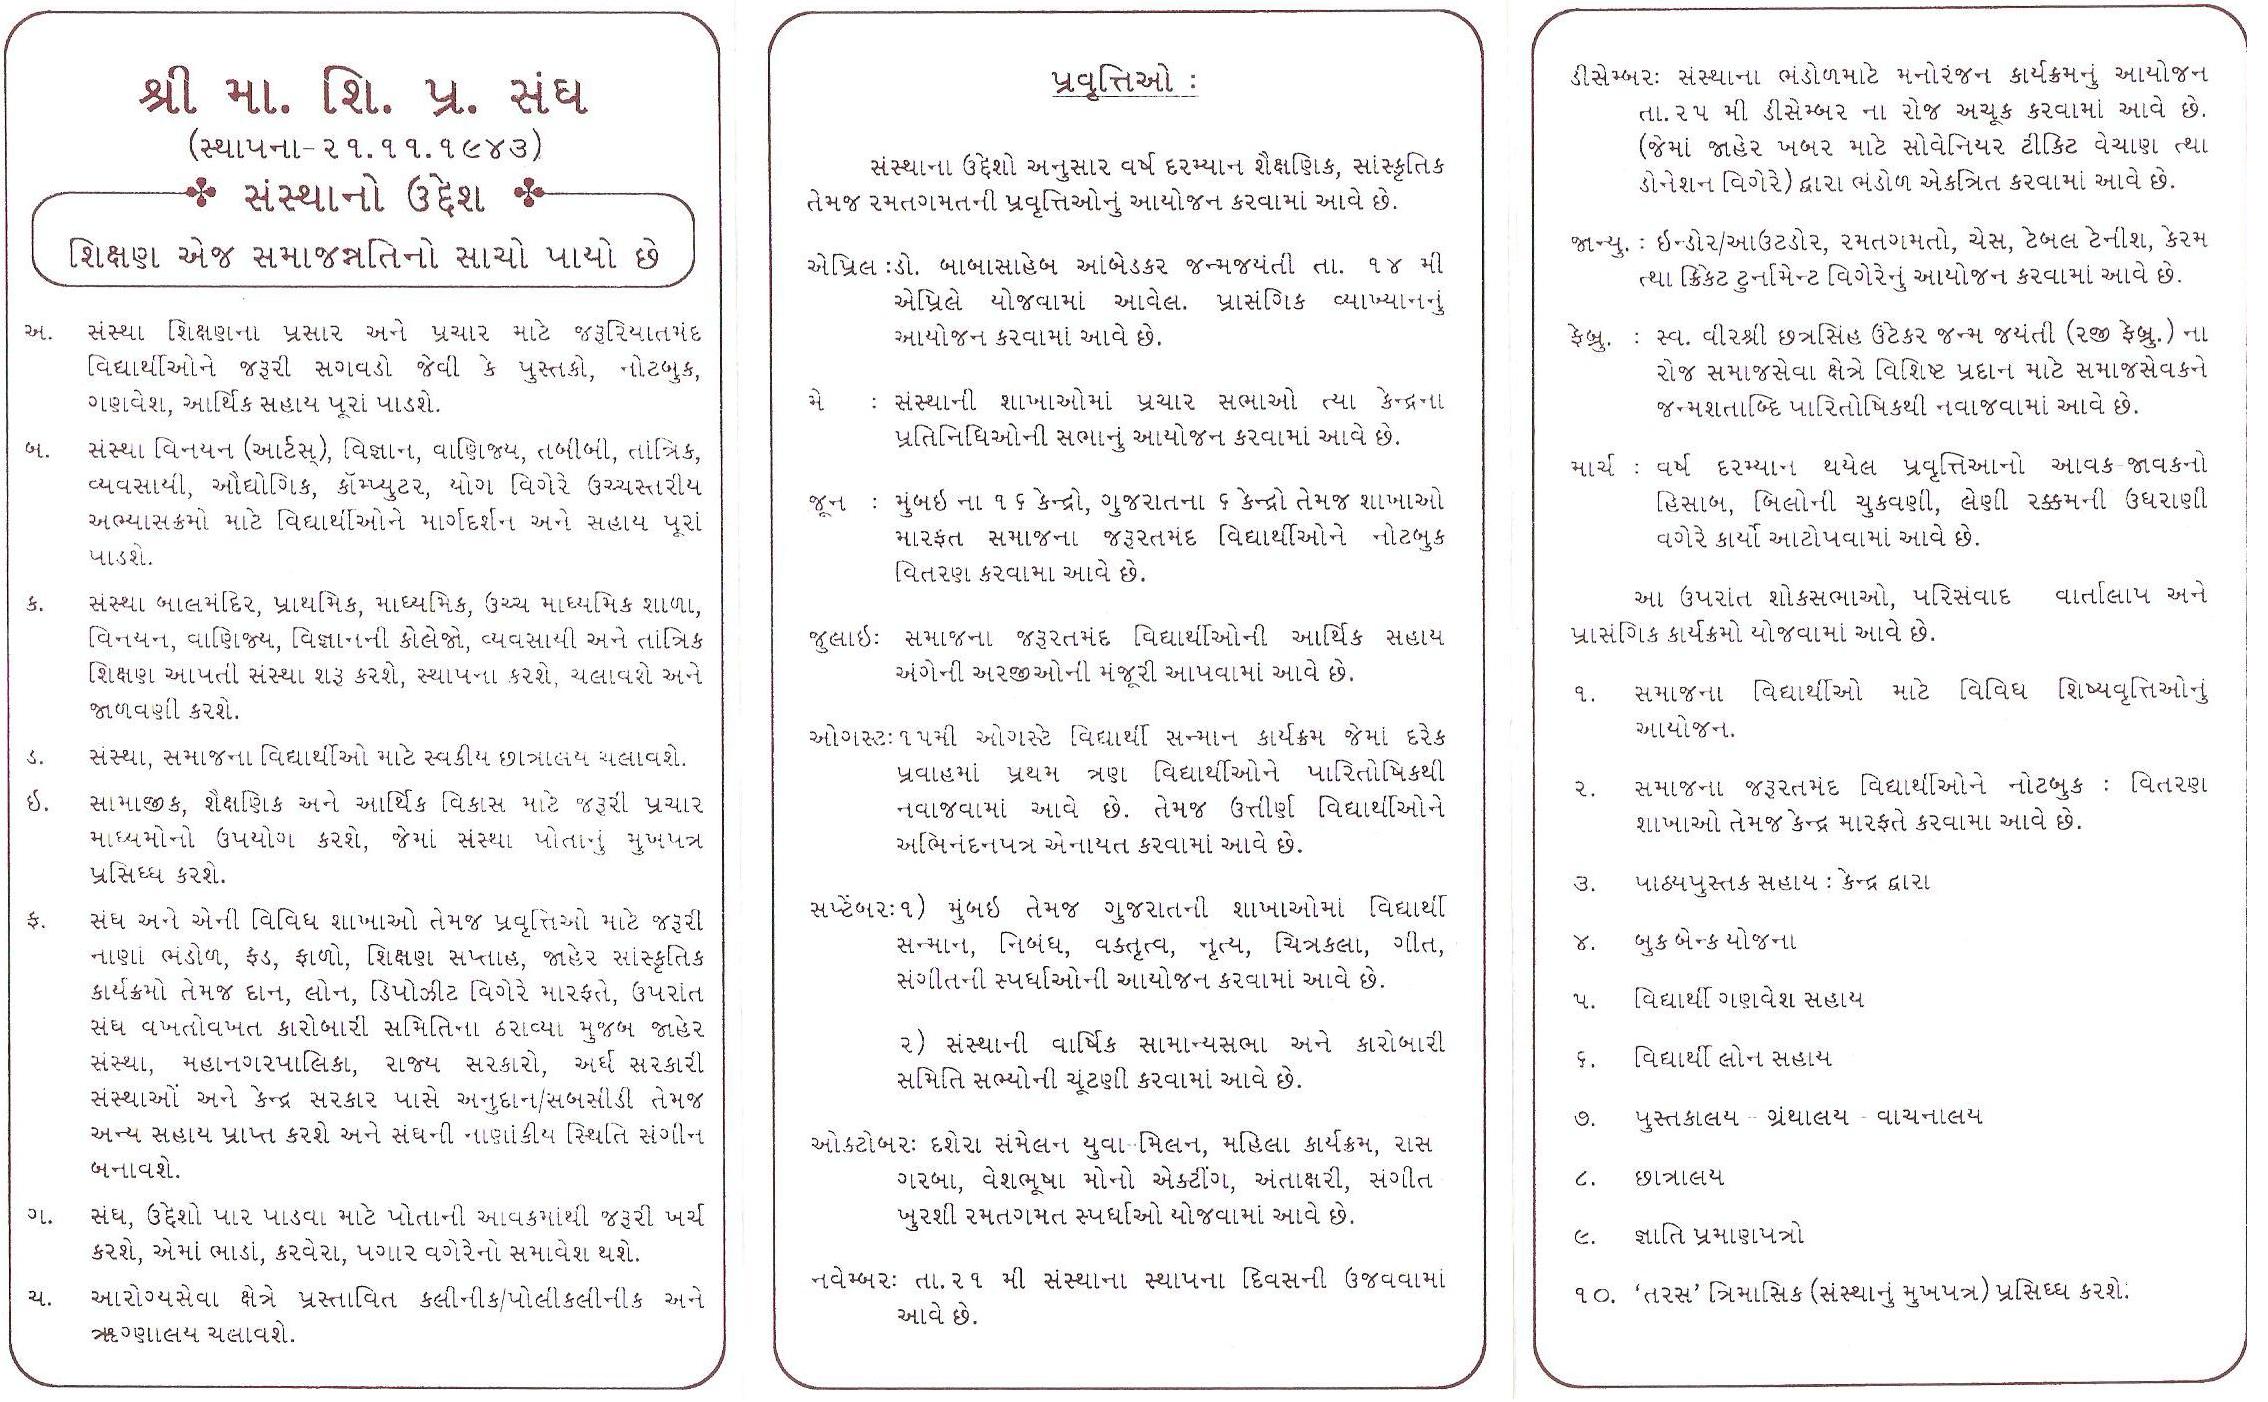 શ્રી મા. શિ. પ્ર. સંઘ
(સ્થાપના-૨૧.૧૧.૧૯૪૩)
સંસ્થાનો ઉદ્દેશ
શિક્ષણ એજ સમાજન્નતિનો સાચો પાયો છે
અ. સંસ્થા શિક્ષણના પ્રસાર અને પ્રચાર માટે જરૂરિયાતમંદ
વિદ્યાર્થીઓને જરૂરી સગવડો જેવી કે પુસ્તકો, નોટબુક,
ગણવેશ, આર્થિક સહાય પૂરાં પાડશે.
બ. સંસ્થા વિનયન (આર્ટસ્), વિજ્ઞાન, વાણિજ્ય, તબીબી, તાંત્રિક,
વ્યવસાયી, ઔદ્યોગિક, કૉમ્પ્યુટર, યોગ વિગેરે ઉચ્ચસ્તરીય
અભ્યાસક્રમો માટે વિદ્યાર્થીઓને માર્ગદર્શન અને સહાય પૂરાં
પાડશે.
ક. સંસ્થા બાલમંદિર, પ્રાથમિક, માધ્યમિક, ઉચ્ચ માધ્યમિક શાળા,
વિનયન, વાણિજ્ય, વિજ્ઞાનની કોલેજો, વ્યવસાયી અને તાંત્રિક
શિક્ષણ આપતી સંસ્થા શરૂ કરશે, સ્થાપના કરશે, ચલાવશે અને
જાળવણી કરશે.
ડ. સંસ્થા, સમાજના વિદ્યાર્થીઓ માટે સ્વકીય છાત્રાલય ચલાવશે.
ઇ. સામાજીક, શૈક્ષણિક અને આર્થિક વિકાસ માટે જરૂરી પ્રચાર
માધ્યમોનો ઉપયોગ કરશે, જેમાં સંસ્થા પોતાનું મુખપત્ર
પ્રસિધ્ધ કરશે.
ફ. સંઘ અને એની વિવિધ શાખાઓ તેમજ પ્રવૃત્તિઓ માટે જરૂરી
નાણાં ભંડોળ, ફંડ, ફાળો, શિક્ષણ સપ્તાહ, જાહેર સાંસ્કૃતિક
કાર્યક્રમો તેમજ દાન, લોન, ડિપોઝીટ વિગેરે મારફતે, ઉપરાંત
સંઘ વખતોવખત કારોબારી સમિતિના ઠરાવ્યા મુજબ જાહેર
સંસ્થા, મહાનગરપાલિકા, રાજ્ય સરકારો, અર્ધ સરકારી
સંસ્થાઓં અને કેન્દ્ર સરકાર પાસે અનુદાન/સબસીડી તેમજ
અન્ય સહાય પ્રાપ્ત કરશે અને સંઘની નાણાંકીય સ્થિતિ સંગીન
બનાવશે.
ગ. સંઘ, ઉદ્દેશો પાર પાડવા માટે પોતાની આવકમાંથી જરૂરી ખર્ચ
કરશે, એમાં ભાડાં, કરવેરા, પગાર વગેરેનો સમાવેશ થશે.
ચ. આરોગ્યસેવા ક્ષેત્રે પ્રસ્તાવિત કલીનીક/પોલીકલીનીક અને
ઋગ્ણાલય ચલાવશે.
પ્રવૃત્તિઓ :
સંસ્થાના ઉદ્દેશો અનુસાર વર્ષ દરમ્યાન શૈક્ષણિક, સાંસ્કૃતિક
તેમજ રમતગમતની પ્રવૃત્તિઓનું આયોજન કરવામાં આવે છે.
એપ્રિલ :ડો. બાબાસાહેબ આંબેડકર જન્મજયંતી તા. ૧૪ મી
એપ્રિલે યોજવામાં આવેલ. પ્રાસંગિક વ્યાખ્યાનનું
આયોજન કરવામાં આવે છે.
મે : સંસ્થાની શાખાઓમાં પ્રચાર સભાઓ ત્યા કેન્દ્રના
પ્રતિનિધિઓની સભાનું આયોજન કરવામાં આવે છે.
જૂન : મુંબઇ ના ૧૬ કેન્દ્રો, ગુજરાતના ૬ કેન્દ્રો તેમજ શાખાઓ
મારફત સમાજના જરૂરતમંદ વિદ્યાર્થીઓને નોટબુક
વિતરણ કરવામા આવે છે.
જુલાઇઃ સમાજના જરૂરતમંદ વિદ્યાર્થીઓની આર્થિક સહાય
અંગેની અરજીઓની મંજૂરી આપવામાં આવે છે.
ઓગસ્ટઃ૧૫મી ઓગસ્ટે વિદ્યાર્થી સન્માન કાર્યક્રમ જેમાં દરેક
પ્રવાહમાં પ્રથમ ત્રણ વિદ્યાર્થીઓને પારિતોષિકથી
નવાજવામાં આવે છે. તેમજ ઉત્તીર્ણ વિદ્યાર્થીઓને
અભિનંદનપત્ર એનાયત કરવામાં આવે છે.
સપ્ટેંબરઃ૧) મુંબઇ તેમજ ગુજરાતની શાખાઓમાં વિદ્યાર્થી
સન્માન, નિબંધ, વક્તૃત્વ, નૃત્ય, ચિત્રકલા, ગીત,
સંગીતની સ્પર્ધાઓની આયોજન કરવામાં આવે છે.
૨) સંસ્થાની વાર્ષિક સામાન્યસભા અને કારોબારી
સમિતિ સભ્યોની ચૂંટણી કરવામાં આવે છે.
ઓકટોબરઃ દશેરા સંમેલન યુવા-મિલન, મહિલા કાર્યક્રમ, રાસ
ગરબા, વેશભૂષા મોનો એક્ટીંગ, અંતાક્ષરી, સંગીત
ખુરશી રમતગમત સ્પર્ધાઓ યોજવામાં આવે છે.
નવેમ્બરઃ તા.૨૧ મી સંસ્થાના સ્થાપના દિવસની ઉજવવામાં
આવે છે.
ડીસેમ્બરઃ સંસ્થાના ભંડોળમાટે મનોરંજન કાર્યક્રમનું આયોજન
તા.૨૫ મી ડીસેમ્બર ના રોજ અચૂક કરવામાં આવે છે.
(જેમાં જાહેર ખબર માટે સોવેનિયર ટીકિટ વેચાણ ત્થા
ડોનેશન વિગેરે) દ્વારા ભંડોળ એકત્રિત કરવામાં આવે છે.
જાન્યુ. : ઇન્ડોર/આઉટડોર, રમતગમતો, ચેસ, ટેબલ ટેનીશ, કેરમ
ત્થા ક્રિકેટ ટુર્નામેન્ટ વિગેરેનું આયોજન કરવામાં આવે છે.
ફેબ્રુ. : સ્વ. વીરશ્રી છત્રસિંહ ઉટેકર જન્મ જયંતી (૨જી ફેબ્રુ.) ના
રોજ સમાજસેવા ક્ષેત્રે વિશિષ્ટ પ્રદાન માટે સમાજસેવકને
જન્મશતાબ્દિ પારિતોષિકથી નવાજવામાં આવે છે.
માર્ચ : વર્ષ દરમ્યાન થયેલ પ્રવૃત્તિઆનો આવક-જાવકનો
હિસાબ, બિલોની ચુકવણી, લેણી રક્કમની ઉઘરાણી
વગેરે કાર્યો આટોપવામાં આવે છે.
આ ઉપરાંત શોકસભાઓ, પરિસંવાદ વાર્તાલાપ અને
પ્રાસંગિક કાર્યક્રમો યોજવામાં આવે છે.
૧. સમાજના વિદ્યાર્થીઓ માટે વિવિધ શિષ્યવૃત્તિઓનું
આયોજન.
૨. સમાજના જરૂરતમંદ વિદ્યાર્થીઓને નોટબુક : વિતરણ
શાખાઓ તેમજ કેન્દ્ર મારફતે કરવામા આવે છે.
૩. પાઠ્યપુસ્તક સહાય : કેન્દ્ર દ્વારા
૪. બુક બેન્ક યોજના
૫. વિદ્યાર્થી ગણવેશ સહાય
૬. વિદ્યાર્થી લોન સહાય
૭. પુસ્તકાલય - ગ્રંથાલય - વાચનાલય
૮. છાત્રાલય
૯. જ્ઞાતિ પ્રમાણપત્રો
૧૦. ‘તરસ’ ત્રિમાસિક (સંસ્થાનું મુખપત્ર) પ્રસિધ્ધ કરશે.